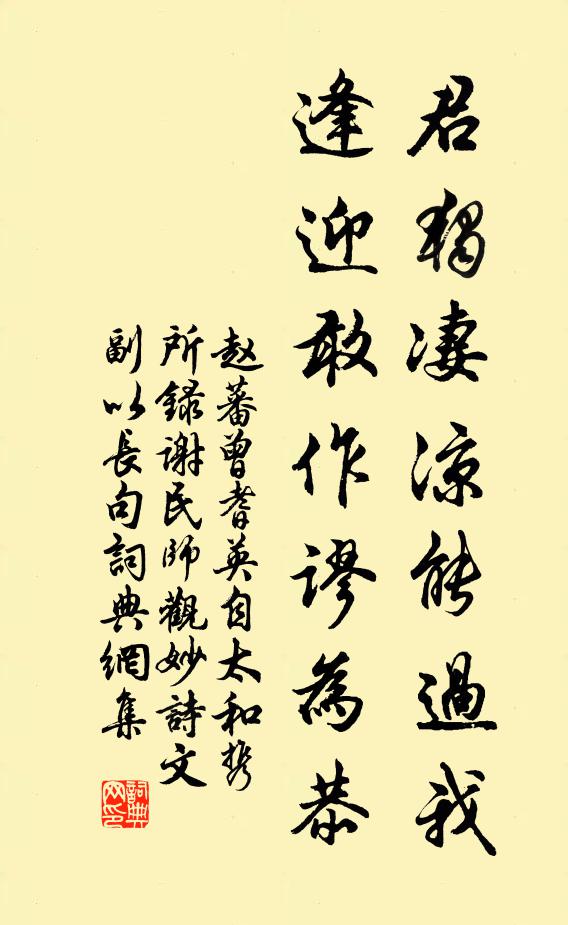 君獨凄涼能過我
逢迎敢作謬為恭
赵蕃曾耆英自太和携
所録谢民師觀妙詩文
副以長句詞典網集
詞典
网印